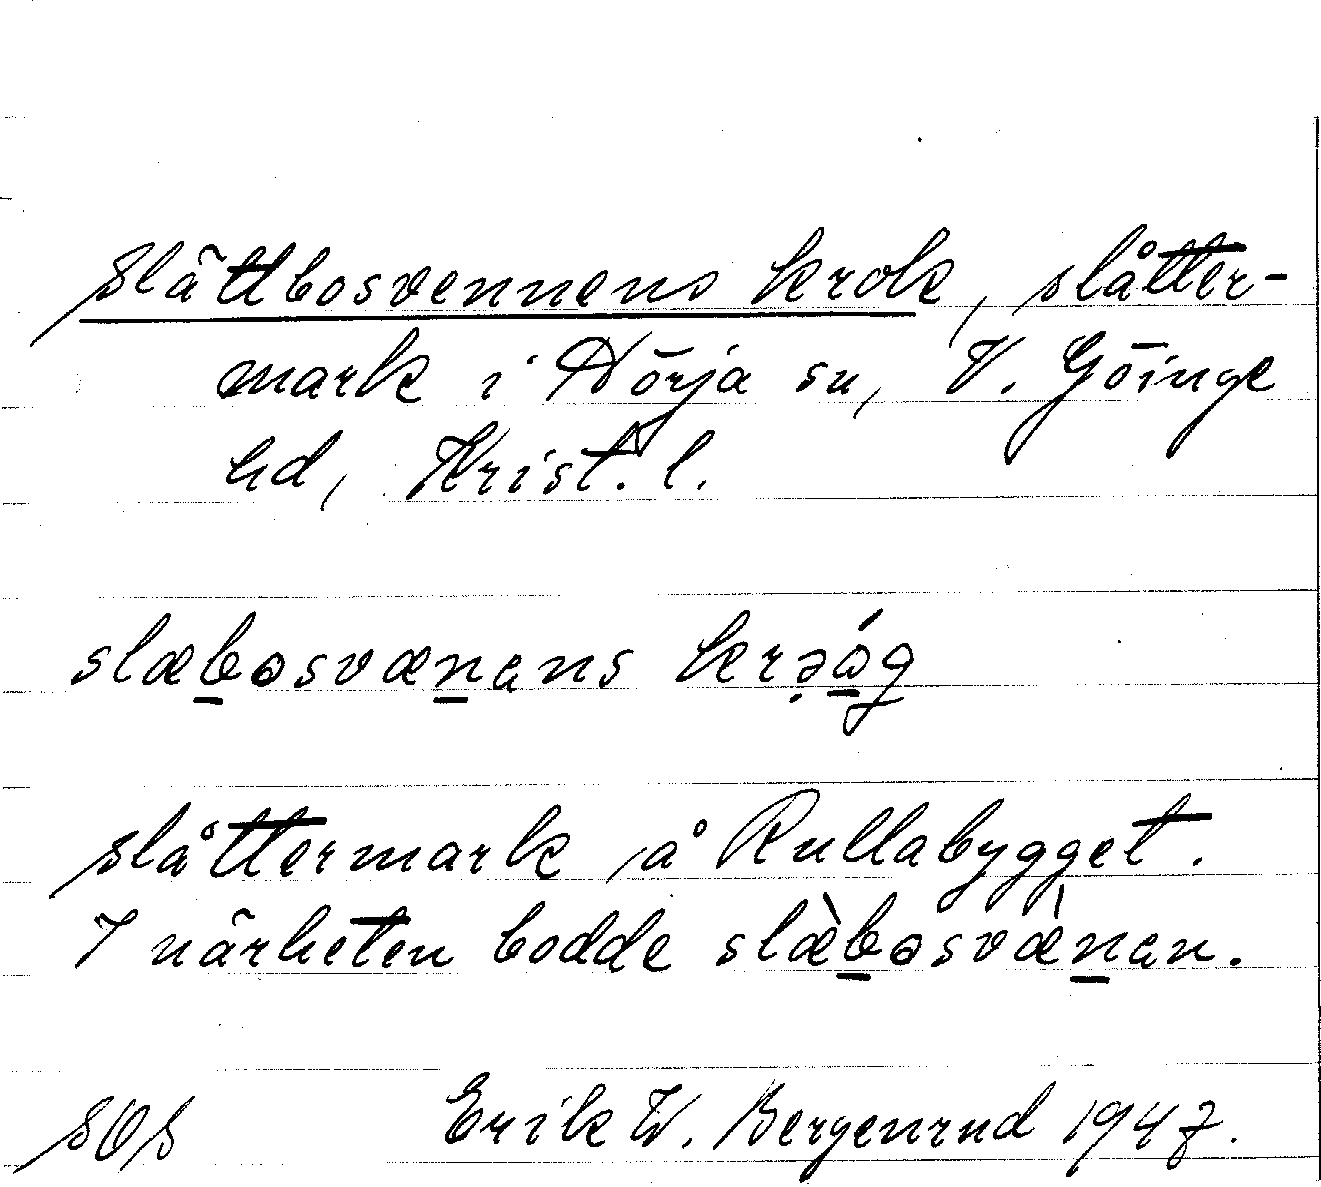 Slättbosvennens krok, slåtter-
mark i Nörja sn, V. Göinge
hd, Krist. l.
slæbosvænans krə̣óg
slåttermark å Rullabygget.
I närheten bodde slæ̀bosvæ̀nan.
SOS Erik W. Bergenrud 1947.